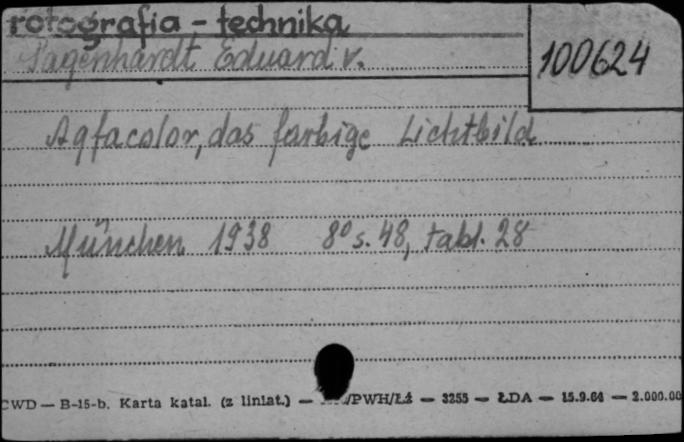 fotografia - technika
Pagenhardt Eduard v.
100624
Agfacolor, das farbige Lichtbild
München 1938 8⁰ s. 48, tabl. 28
CWD — B-15-b. Karta katal. (z liniat.) — /PWH/Łź — 3255 — ŁDA — 15.9.64 — 2.000.00